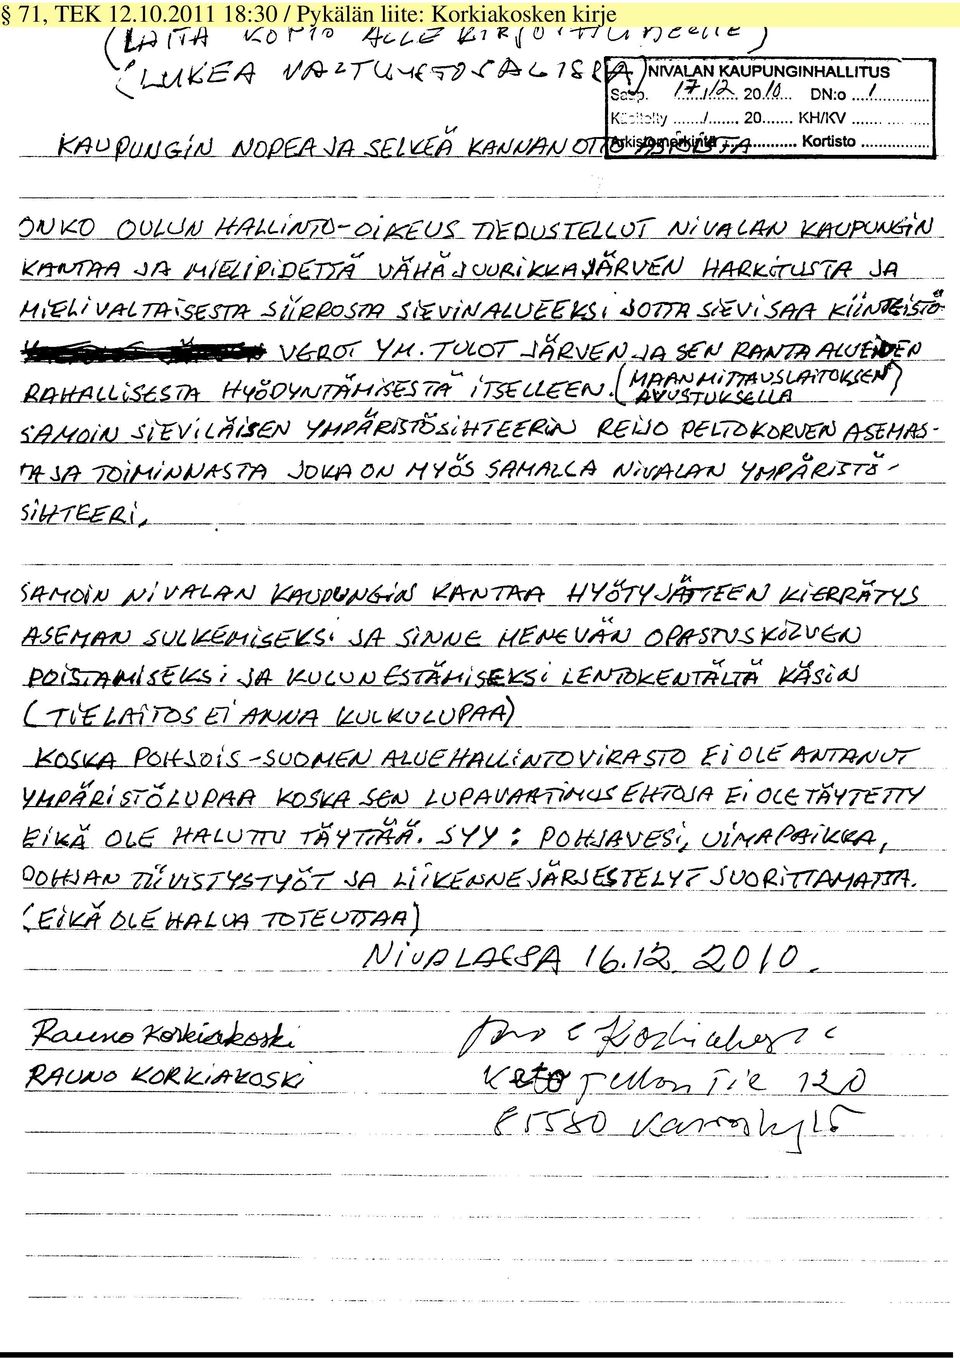 § 71, TEK 12.10.2011 18:30 / Pykälän liite: Korkiakosken kirje
(LAITA KOPIO ALLE KIRJOITTUNEELLE)
(LUKEA VALTUUSTOSALISSA)
NIVALAN KAUPUNGINHALLITUS
Saap. 17/12 2010 DN:o /
Käsitelty ......./....... 20...... KH/KV
Arkistomerkintä Kortisto
KAUPUNGIN NOPEA JA SELKEÄ KANNANOTTO ASIOISTA
ONKO OULUN HALLINTO-OIKEUS TIEDUSTELLUT NIVALAN KAUPUNGIN
KANTAA JA MIELIPIDETTÄ VÄHÄJUURIKKAJÄRVEN HARKITUSTA JA
MIELIVALTAISESTA SIIRROSTA SIEVIN ALUEEKSI JOTTA SIEVI SAA KIINTEISTÖ-
VEROT YM. TULOT JÄRVEN JA SEN RANTA ALUEIDEN
RAHALLISESTA HYÖDYNTÄMISESTÄ ITSELLEEN. (MAANMITTAUSLAITOKSEN AVUSTUKSELLA)
SAMOIN SIEVILÄISEN YMPÄRISTÖSIHTEERIN REIJO PELTOKORVEN ASEMAS-
TA JA TOIMINNASTA JOKA ON MYÖS SAMALLA NIVALAN YMPÄRISTÖ-
SIHTEERI,
SAMOIN NIVALAN KAUPUNGIN KANTAA HYÖTYJÄTTEEN KIERRÄTYS
ASEMAN SULKEMISEKSI JA SINNE MENEVÄN OPASTUSKILVEN
POISTAMISEKSI JA KULUN ESTÄMISEKSI LENTOKENTÄLTÄ KÄSIN
(TIELAITOS EI ANNA KULKULUPAA)
KOSKA POHJOIS-SUOMEN ALUEHALLINTOVIRASTO EI OLE ANTANUT
YMPÄRISTÖLUPAA KOSKA SEN LUPAVAATIMUS EHTOJA EI OLE TÄYTETTY
EIKÄ OLE HALUTTU TÄYTTÄÄ. SYY: POHJAVESI, UIMAPAIKKA,
POHJAN TIIVISTYSTYÖT JA LIIKENNEJÄRJESTELYT SUORITTAMATTA.
(EIKÄ OLE HALUA TOTEUTTAA)
NIVALASSA 16.12.2010.
Rauno Korkiakoski
RAUNO KORKIAKOSKI
Tie 120
85580 Karvoskylä